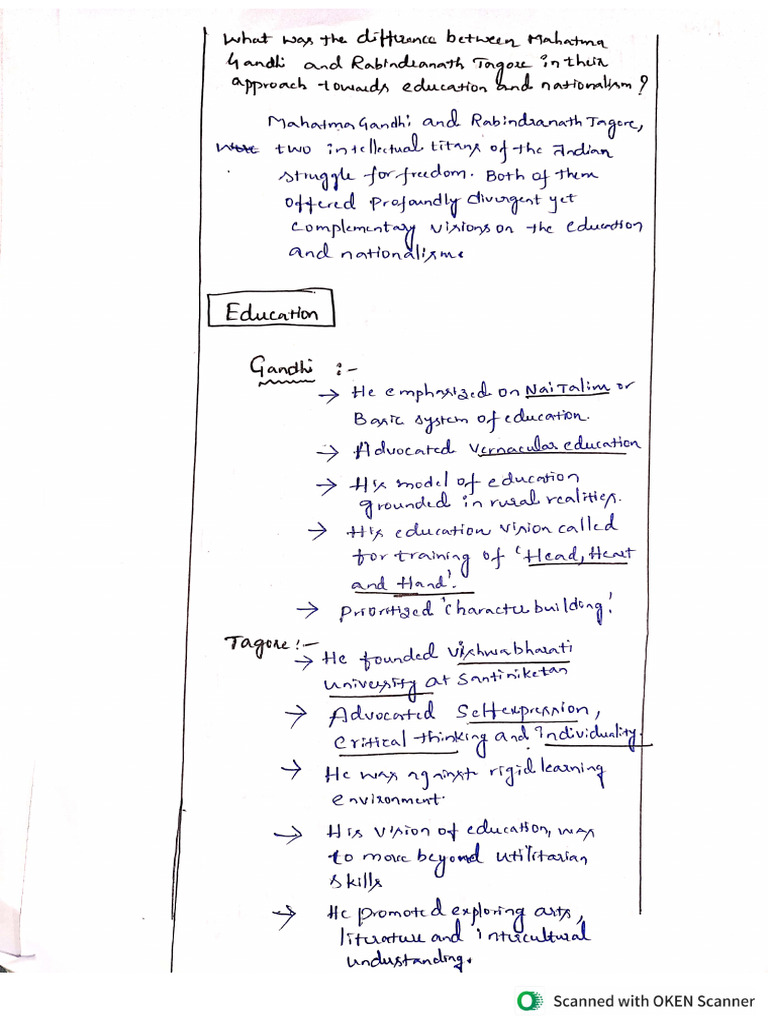 What was the difference between Mahatma
Gandhi and Rabindranath Tagore in their
approach towards education and nationalism?
Mahatma Gandhi and Rabindranath Tagore,
were two intellectual titans of the Indian
struggle for freedom. Both of them
offered profoundly divergent yet
complementary visions on the education
and nationalism.
Education
Gandhi :-
→ He emphasized on Nai Talim or
Basic system of education.
→ Advocated vernacular education
→ His model of education
grounded in rural realities.
→ His education vision called
for training of 'Head, Heart
and Hand'.
→ Prioritized 'character building'.
Tagore :-
→ He founded Vishwabharati
University at Santiniketan
→ Advocated Self expression,
critical thinking and individuality.
→ He was against rigid learning
environment.
→ His vision of education, was
to move beyond utilitarian
skills
→ He promoted exploring arts,
literature and intercultural
understanding.
Scanned with OKEN Scanner